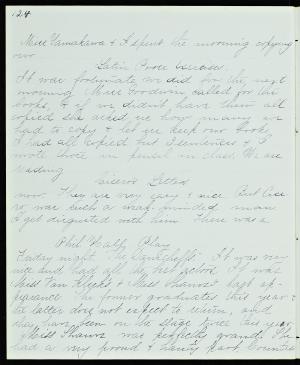 124
Miss Yamakawa & I spent the morning copying
our
Latin Prose Exercises.
It was fortunate we did for the next
morning Miss Goodwin called for the
books, & if we didn't have them all
copied she asked us how many we
had to copy & let us keep our books
I had all copied but 2 sentences & I
wrote those in pencil in class. We are
reading
Cicero's Letters
now. They are very easy & nice. But Cice-
ro was such a weak minded man
I get disgusted with him. There was a
Phil Play
Friday night. The It was very
nice and had all the best actors. It was
Miss Van Kleeck's & Miss Shaw's last ap-
pearance. The former graduates this year &
the latter does not expect to return, and
they have been on the stage twice this year.
Miss Shaw was perfectly grand. She
had a very proud & haughty part, Countess